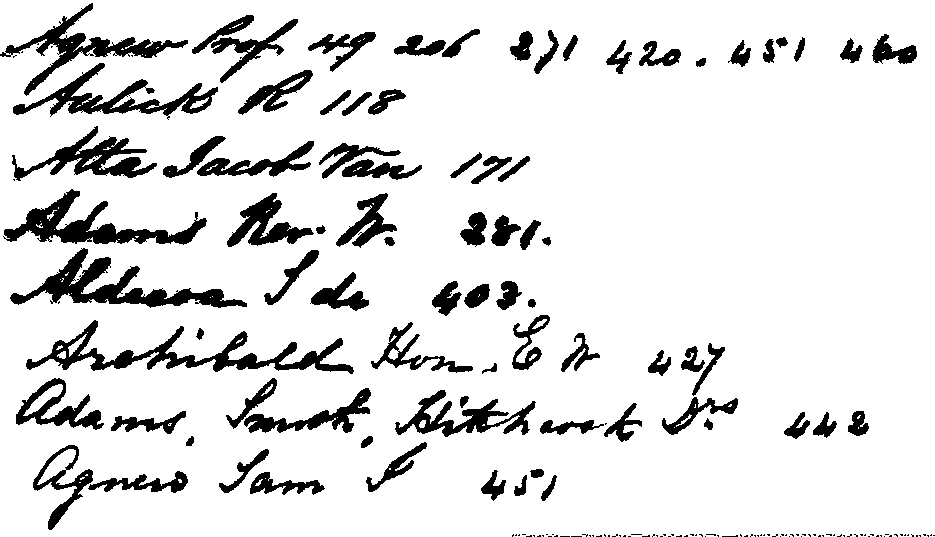 Agnew Prof 49 206 271 420. 451 460
Aulick R 118
Atta Jacob Van 171
Adams Rev. W. 281.
Aldecoa I de 403.
Archibald Hon. E W 427
Adams, Smith, Hitchcock Drs 442
Agnew Sam J 451